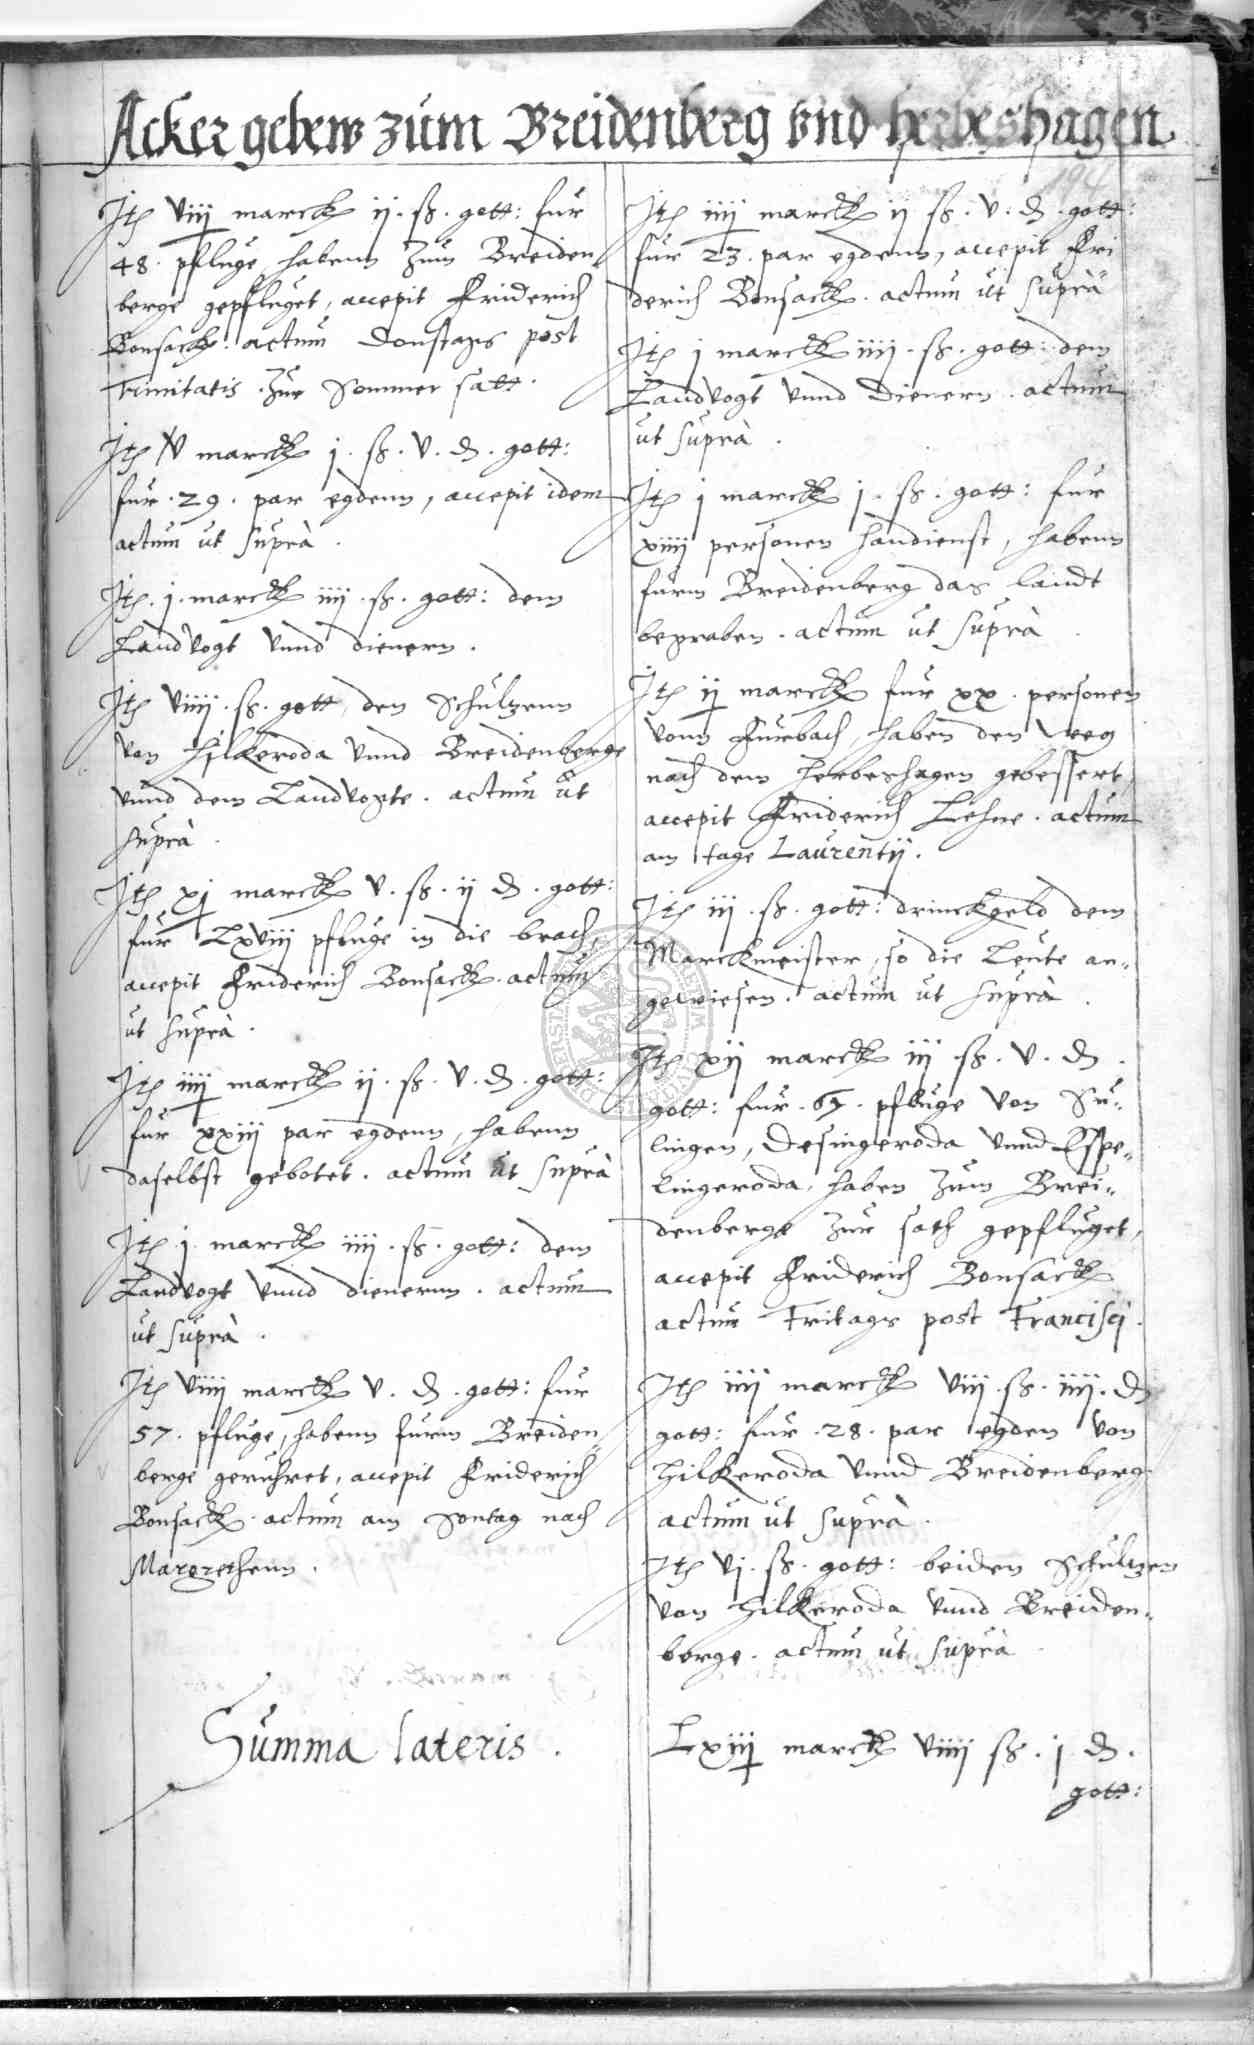 Acker gebew zum Breidenberg vnd herbeshagen
194
Jtē viiij marck ij. ß. gott: fur
48. pfluge, habenn zum Breiden
berge gepfluget, accepit Friderich
Bonsack. actum Donstags post
Trinitatis. zur Sommer satt.
Jtē v marck j. ß. v. d. gott:
fur. 29. par egdenn, accepit idem
actum ut suprà.
Jtē. j. marck iiij. ß. gott: dem
Landvogt vnnd dienern.
Jtē viiij. ß. gott, den Schultzenn
von Hilkeroda vnnd Breidenberge
vnnd dem Landvogte. actum ut
suprà.
Jtē xj marck v. ß. ij d. gott:
fur Lxviij pfluge in die brach,
accepit Friderich Bonsack. actum
ut suprà.
Jtē iiij marck ij. ß. v. d. gott:
fur xxiij par egdenn, habenn
daselbst gebotet. actum ut suprà
Jtē j marck iiij. ß. gott: dem
Landvogt vnnd dienernn. actum
ut suprà.
Jtē viiij marck v. d. gott: fur
57. pfluge, habenn furm Breiden
berge geruhret, accepit Friderich
Bonsack. actum am Sontag nach
Margrethenn.
Summa lateris.
Jtē iiij marck ij ß. v. d. gott:
fur 23. par egdenn, accepit Fri
derich Bonsack. actum ut suprà
Jtē j marck iiij. ß. gott: dem
Landvogt vnnd Dienern. actum
ut suprà.
Jtē j marck j. ß. gott: fur
xiiij personen handienst, habenn
furm Breidenberg das landt
begraben. actum ut suprà.
Jtē ij marck fur xx. personen
vonn Furbach, haben den weg
nach dem herbeshagen gebessert,
accepit Friderich Lehne. actum
am tage Laurentij.
Jtē iij. ß. gott: drinckgeld dem
Marckmeister, so die Leute an„
gewiesen. actum ut suprà.
Jtē xij marck iij ß. v. d.
gott: fur. 67. pfluge von Su„
lingen, Desingeroda vnnd Espe„
lingeroda, haben zum Brei„
denberge zur sath gepfluget,
accepit Friderich Bonsack
actum Fritags post Francisci.
Jtē iiij marck viij. ß. iiij. d
gott: fur. 28. par egden von
Hilkeroda vnnd Breidenberg
actum ut suprà.
Jtē vj. ß. gott: beiden Schultzen
von Hilkeroda vnnd Breiden„
berge. actum ut suprà
Lxiij marck viiij ß. j d.
gott: